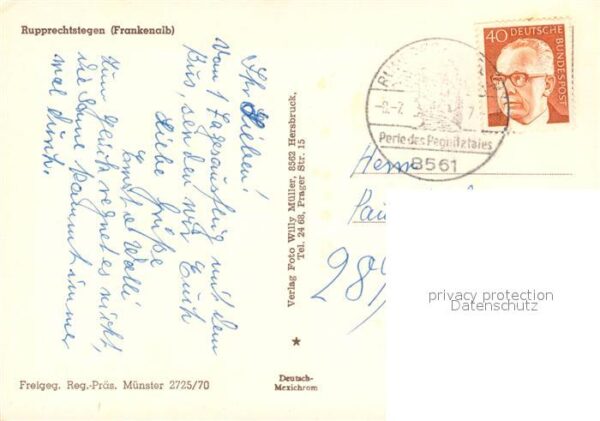 Rupprechtstegen (Frankenalb)
Ihr Lieben!
Vom 1 Tagesausflug mit dem
Bus, senden wir Euch
Liebe Grüße
Ernst u. Walli
Zum Glück regnet es nicht,
die Sonne kommt immer
mal durch.
Freigeg. Reg.-Präs. Münster 2725/70
Verlag Foto Willy Müller, 8562 Hersbruck,
Tel. 24 68, Prager Str. 15
Deutsch-
Mexichrom
Perle des Pegnitztales
8561
40 DEUTSCHE
BUNDESPOST
Herrn
privacy protection
Datenschutz